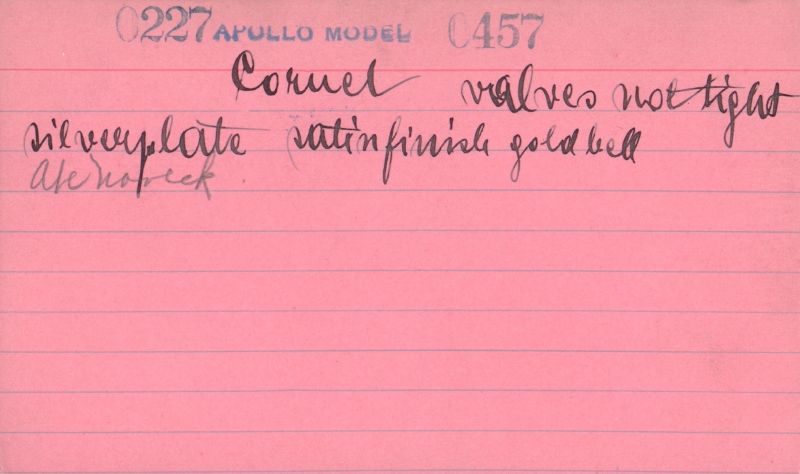 0227 APOLLO MODEL 0457
Cornet valves not tight
silverplate satinfinish gold bell